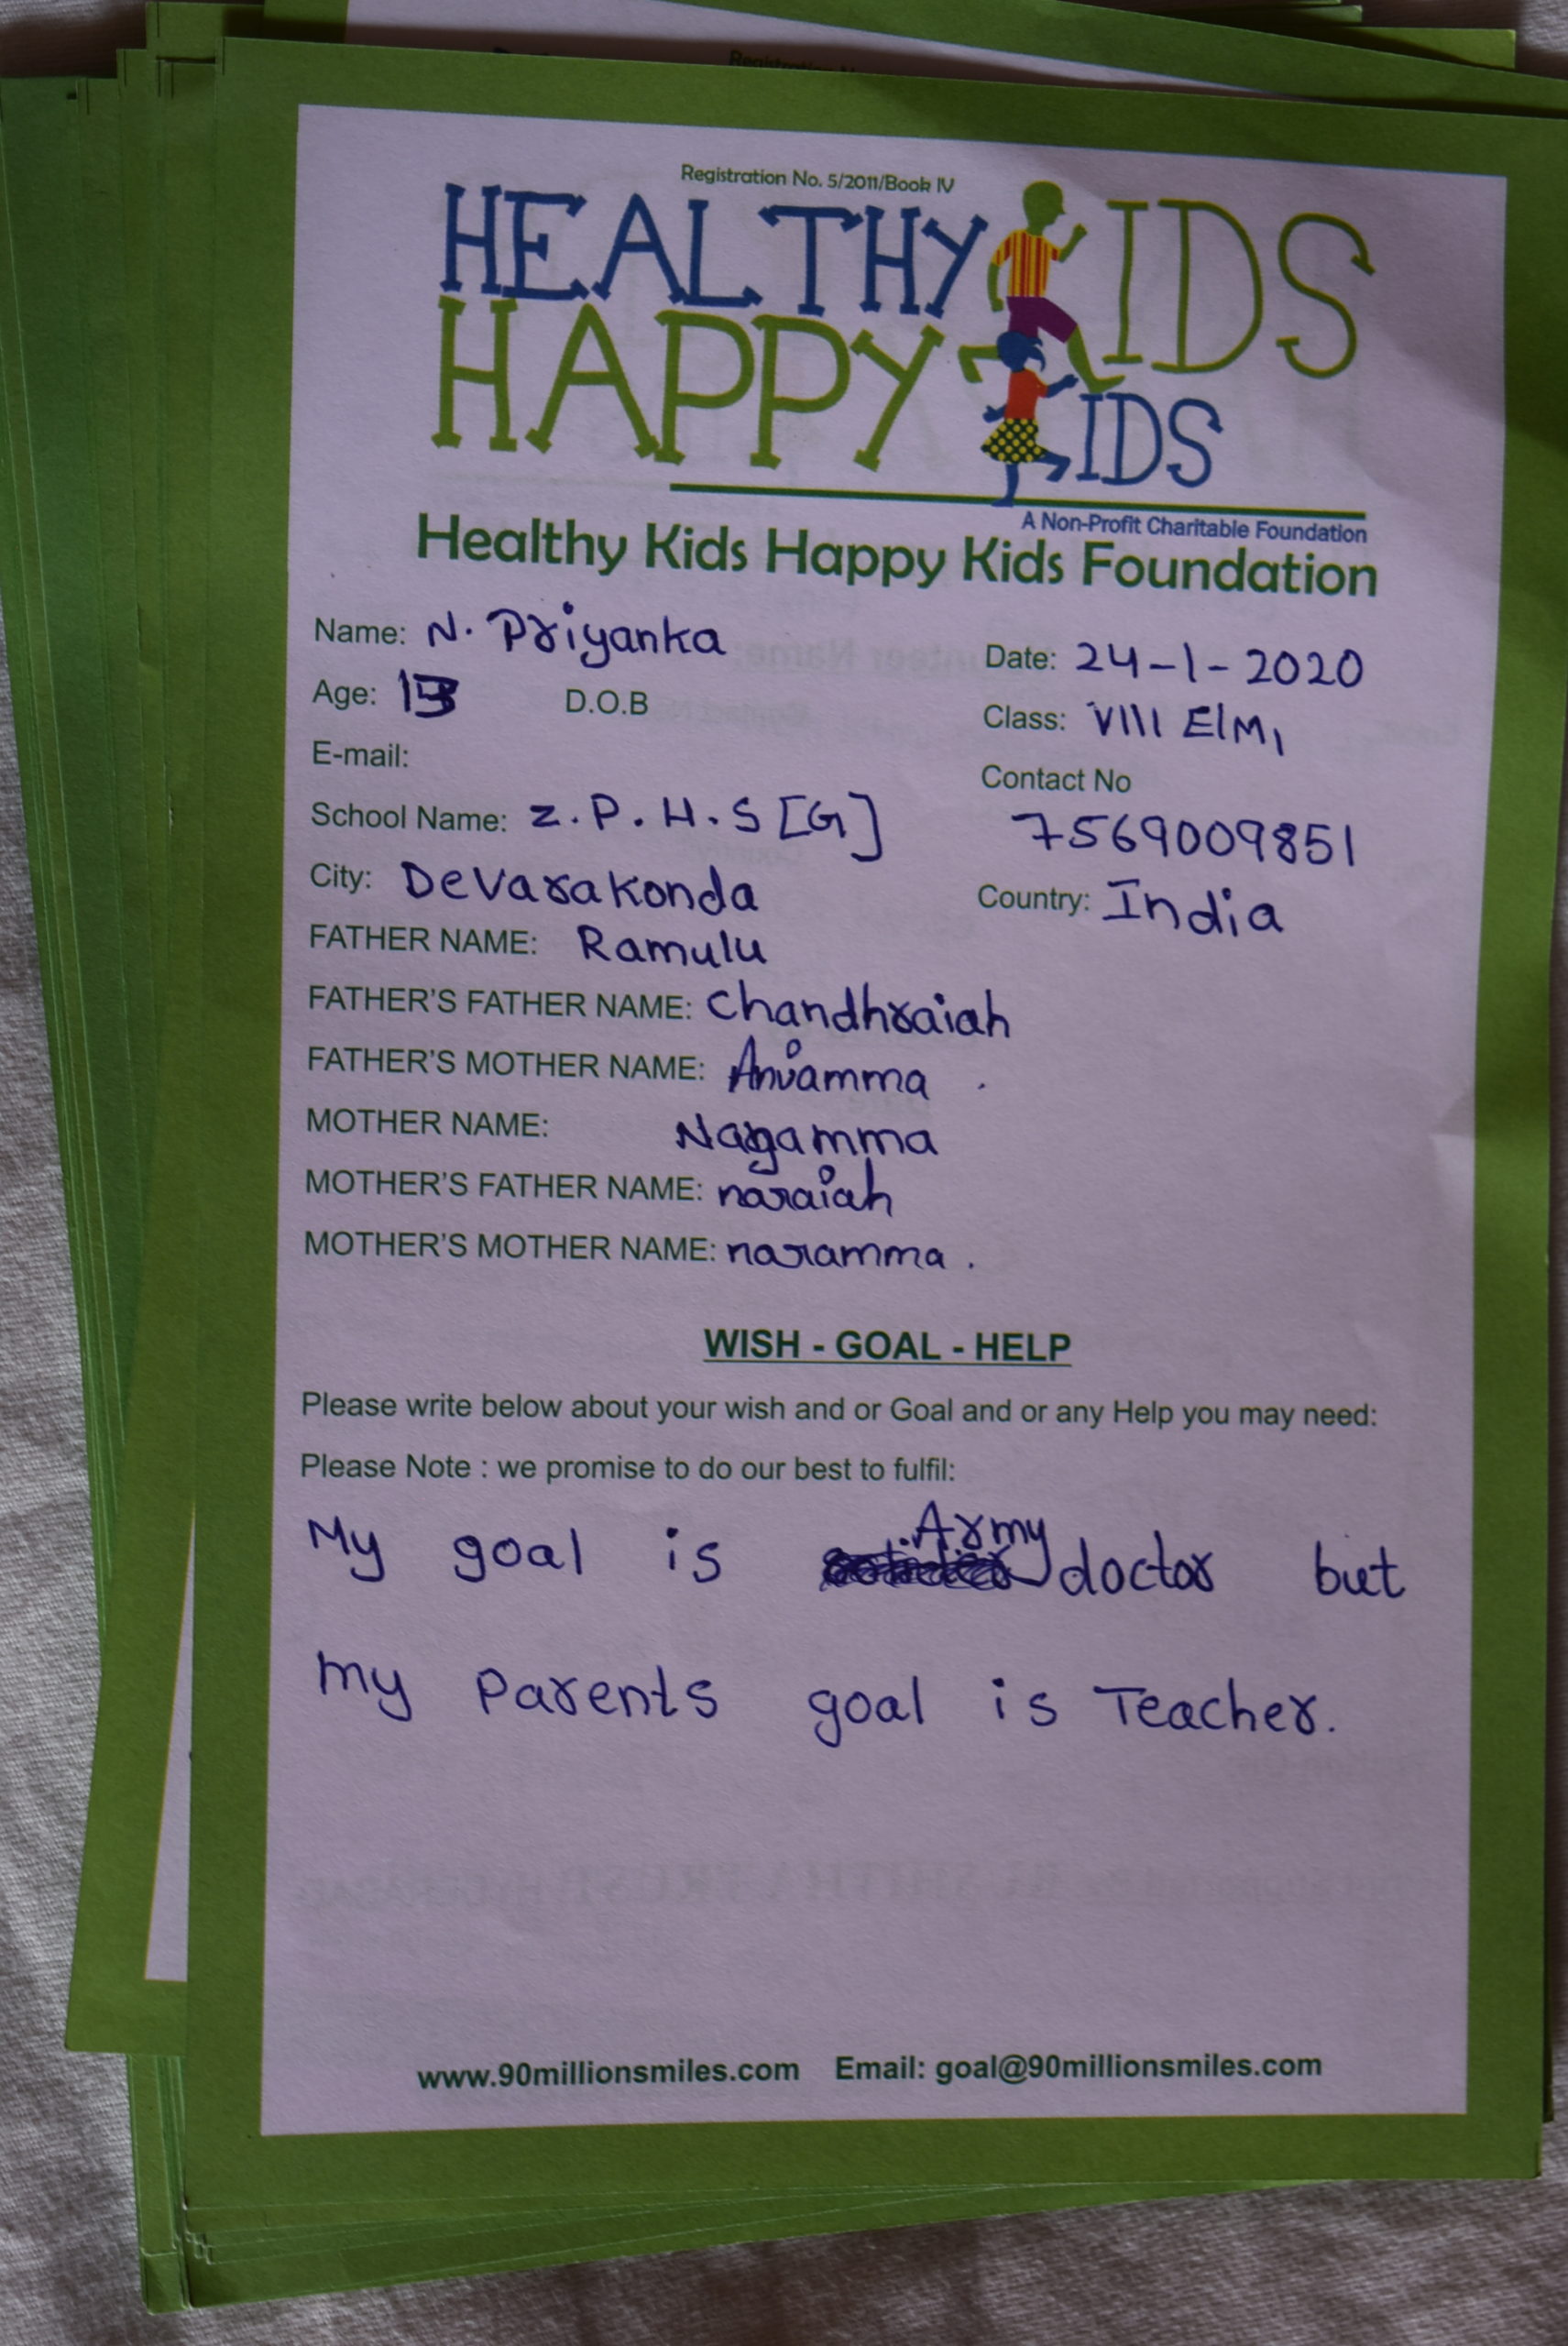 Registration No. 5/2011/Book IV
HEALTHY KIDS
HAPPY KIDS
A Non-Profit Charitable Foundation
Healthy Kids Happy Kids Foundation
Name: N. Priyanka
Date: 24-1-2020
Age: 13 D.O.B
Class: VIII E/M1
E-mail:
Contact No
School Name: Z.P.H.S [G]
7569009851
City: Devarakonda
Country: India
FATHER NAME: Ramulu
FATHER'S FATHER NAME: Chandhraiah
FATHER'S MOTHER NAME:
MOTHER NAME: Nagamma
MOTHER'S FATHER NAME: naraiah
MOTHER'S MOTHER NAME: naramma.
WISH - GOAL - HELP
Please write below about your wish and or Goal and or any Help you may need:
Please Note : we promise to do our best to fulfil:
My goal is Army doctor but
my Parents goal is Teacher.
www.90millionsmiles.com Email: goal@90millionsmiles.com